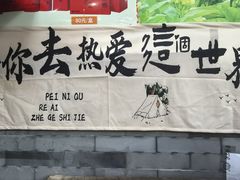 80元/盒
你去热爱這個世界
PEI NI QU
RE AI
ZHE GE SHI JIE